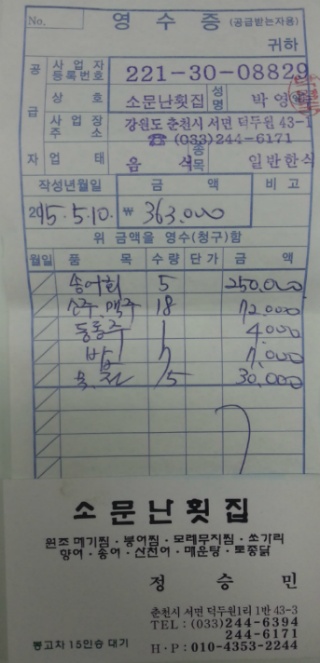 No. 영 수 증 (공급받는자용)
귀하
공 급 자
사업자 등록번호 221-30-08829
상 호 소문난횟집 성명 박 영
사업장 주소 강원도 춘천시 서면 덕두원 43-1
☎ (033)244-6171
업 태 음 식 종목 일반한식
작성년월일 금 액 비 고
2015.5.10. ₩ 363,000
위 금액을 영수(청구)함
월일 품 목 수 량 단 가 금 액
송어회 5 250,000
소주, 맥주 18 72,000
동동주 1 4,000
밥 7 7,000
15 30,000
소문난횟집
원조 메기찜·붕어찜·모래무지찜·쏘가리
향어·송어·산천어·매운탕·토종닭
정 승 민
춘천시 서면 덕두원1리 1반 43-3
TEL: (033)244-6394
244-6171
봉고차 15인승 대기 H·P: 010-4353-2244